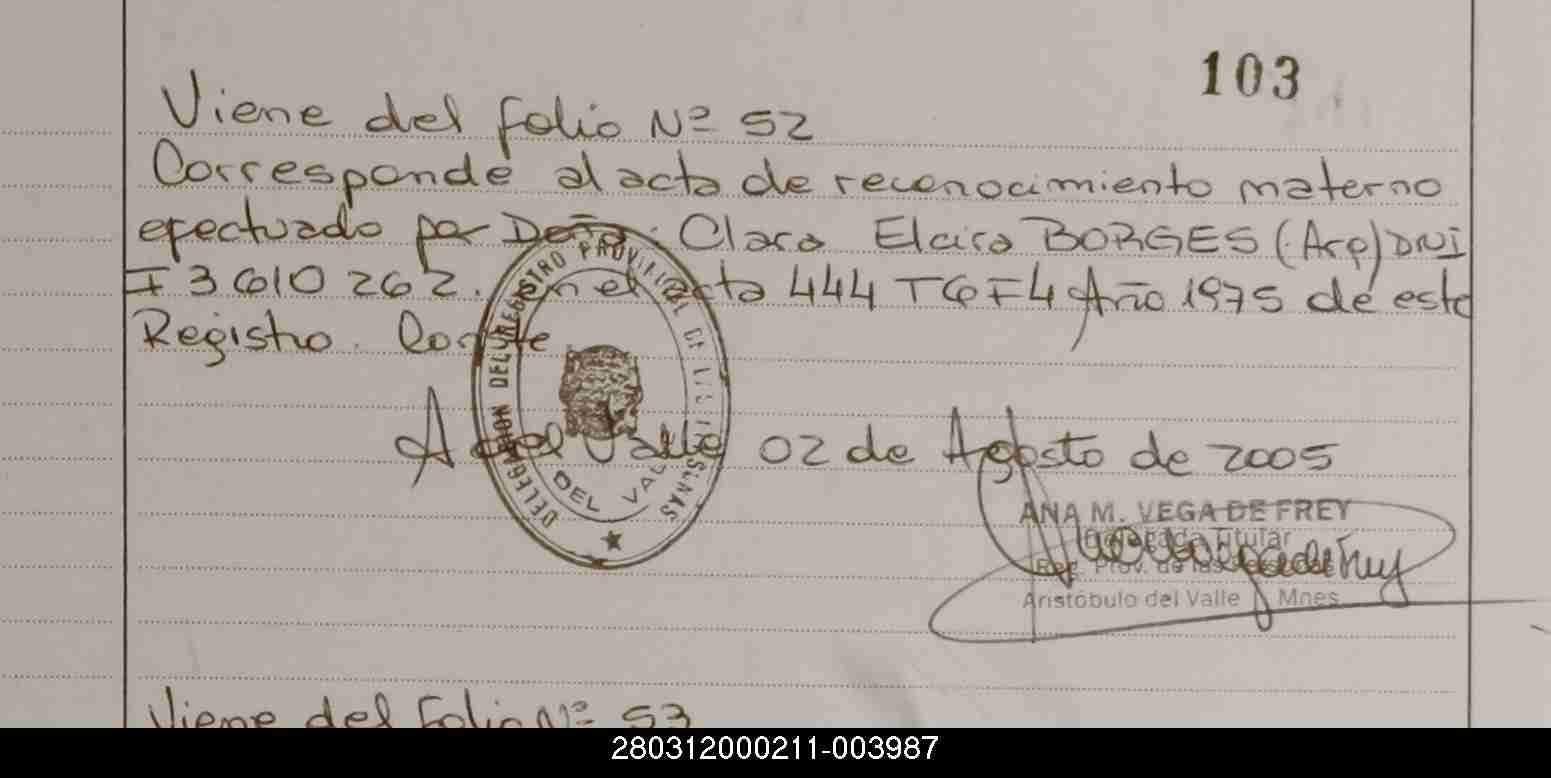 103
Viene del folio Nº 52
Corresponde al acta de reconocimiento materno
efectuado por Doña. Clara Elcira BORGES (Arg) DNI
F 3 610 262. en el acta 444 T6 F4 Año 1975 de este
Registro. Conste
DELEGACION DEL REGISTRO PROVINCIAL DE LAS PERSONAS
DEL VALLE
A del Valle 02 de Agosto de 2005
ANA M. VEGA DE FREY
Delegada Titular
Reg. Prov. de las
Aristóbulo del Valle Mnes
Viene del Folio Nº 53
280312000211-003987